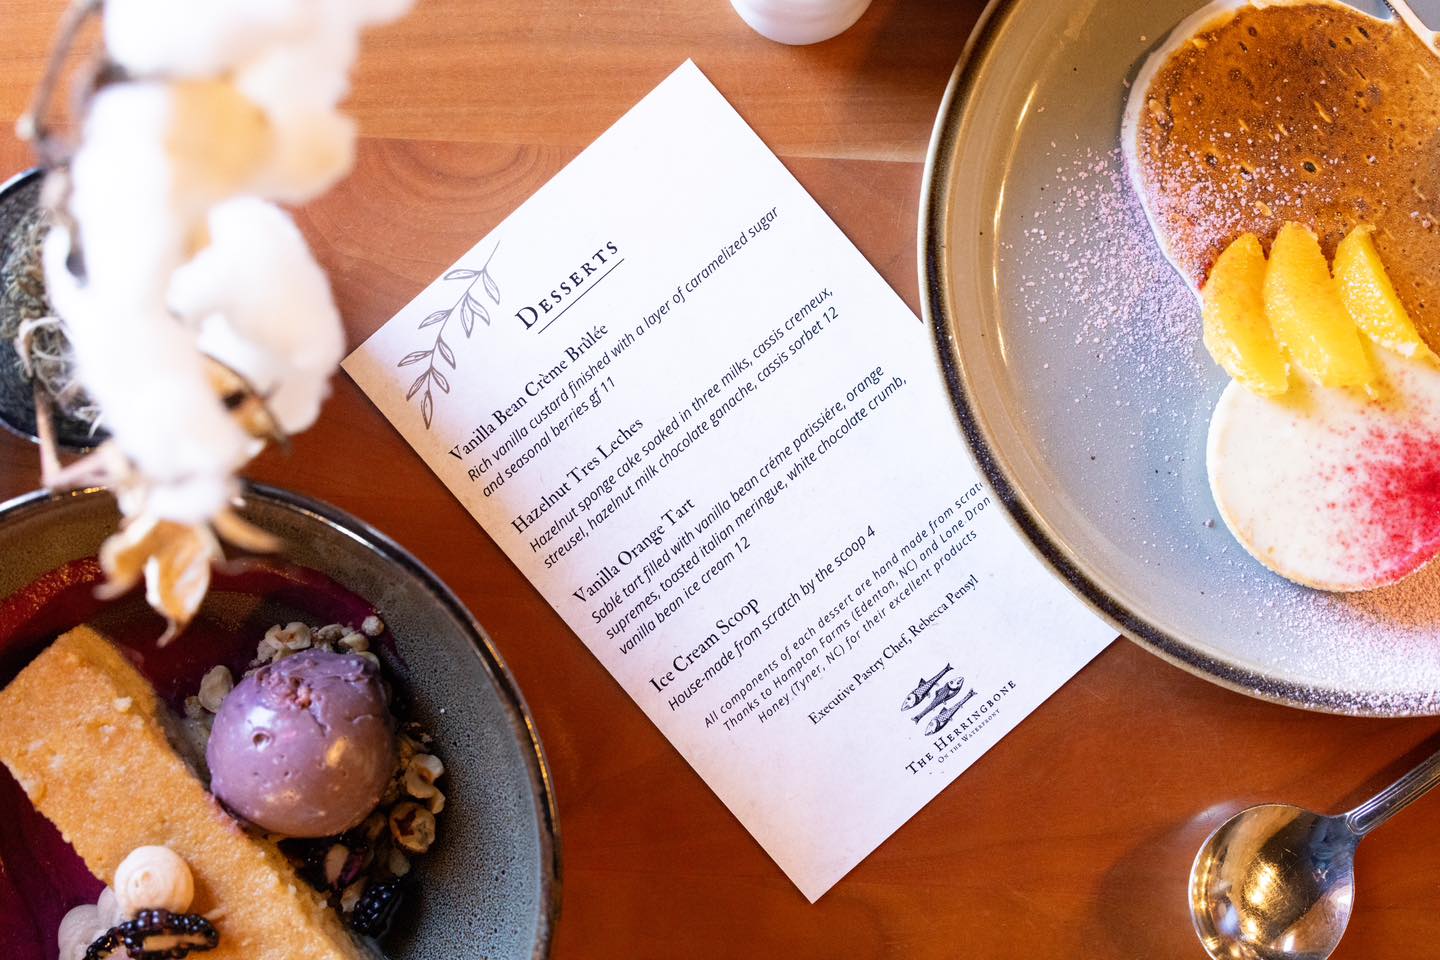 Desserts
Vanilla Bean Crème Brûlée
Rich vanilla custard finished with a layer of caramelized sugar
and seasonal berries gf 11
Hazelnut Tres Leches
Hazelnut sponge cake soaked in three milks, cassis cremeux,
streusel, hazelnut milk chocolate ganache, cassis sorbet 12
Vanilla Orange Tart
Sablé tart filled with vanilla bean créme patissiére, orange
supremes, toasted italian meringue, white chocolate crumb,
vanilla bean ice cream 12
Ice Cream Scoop
House-made from scratch by the scoop 4
All components of each dessert are hand made from scratch
Thanks to Hampton Farms (Edenton, NC) and Lone Dron
Honey (Tyner, NC) for their excellent products
Executive Pastry Chef, Rebecca Pensyl
The Herringbone
On the Waterfront